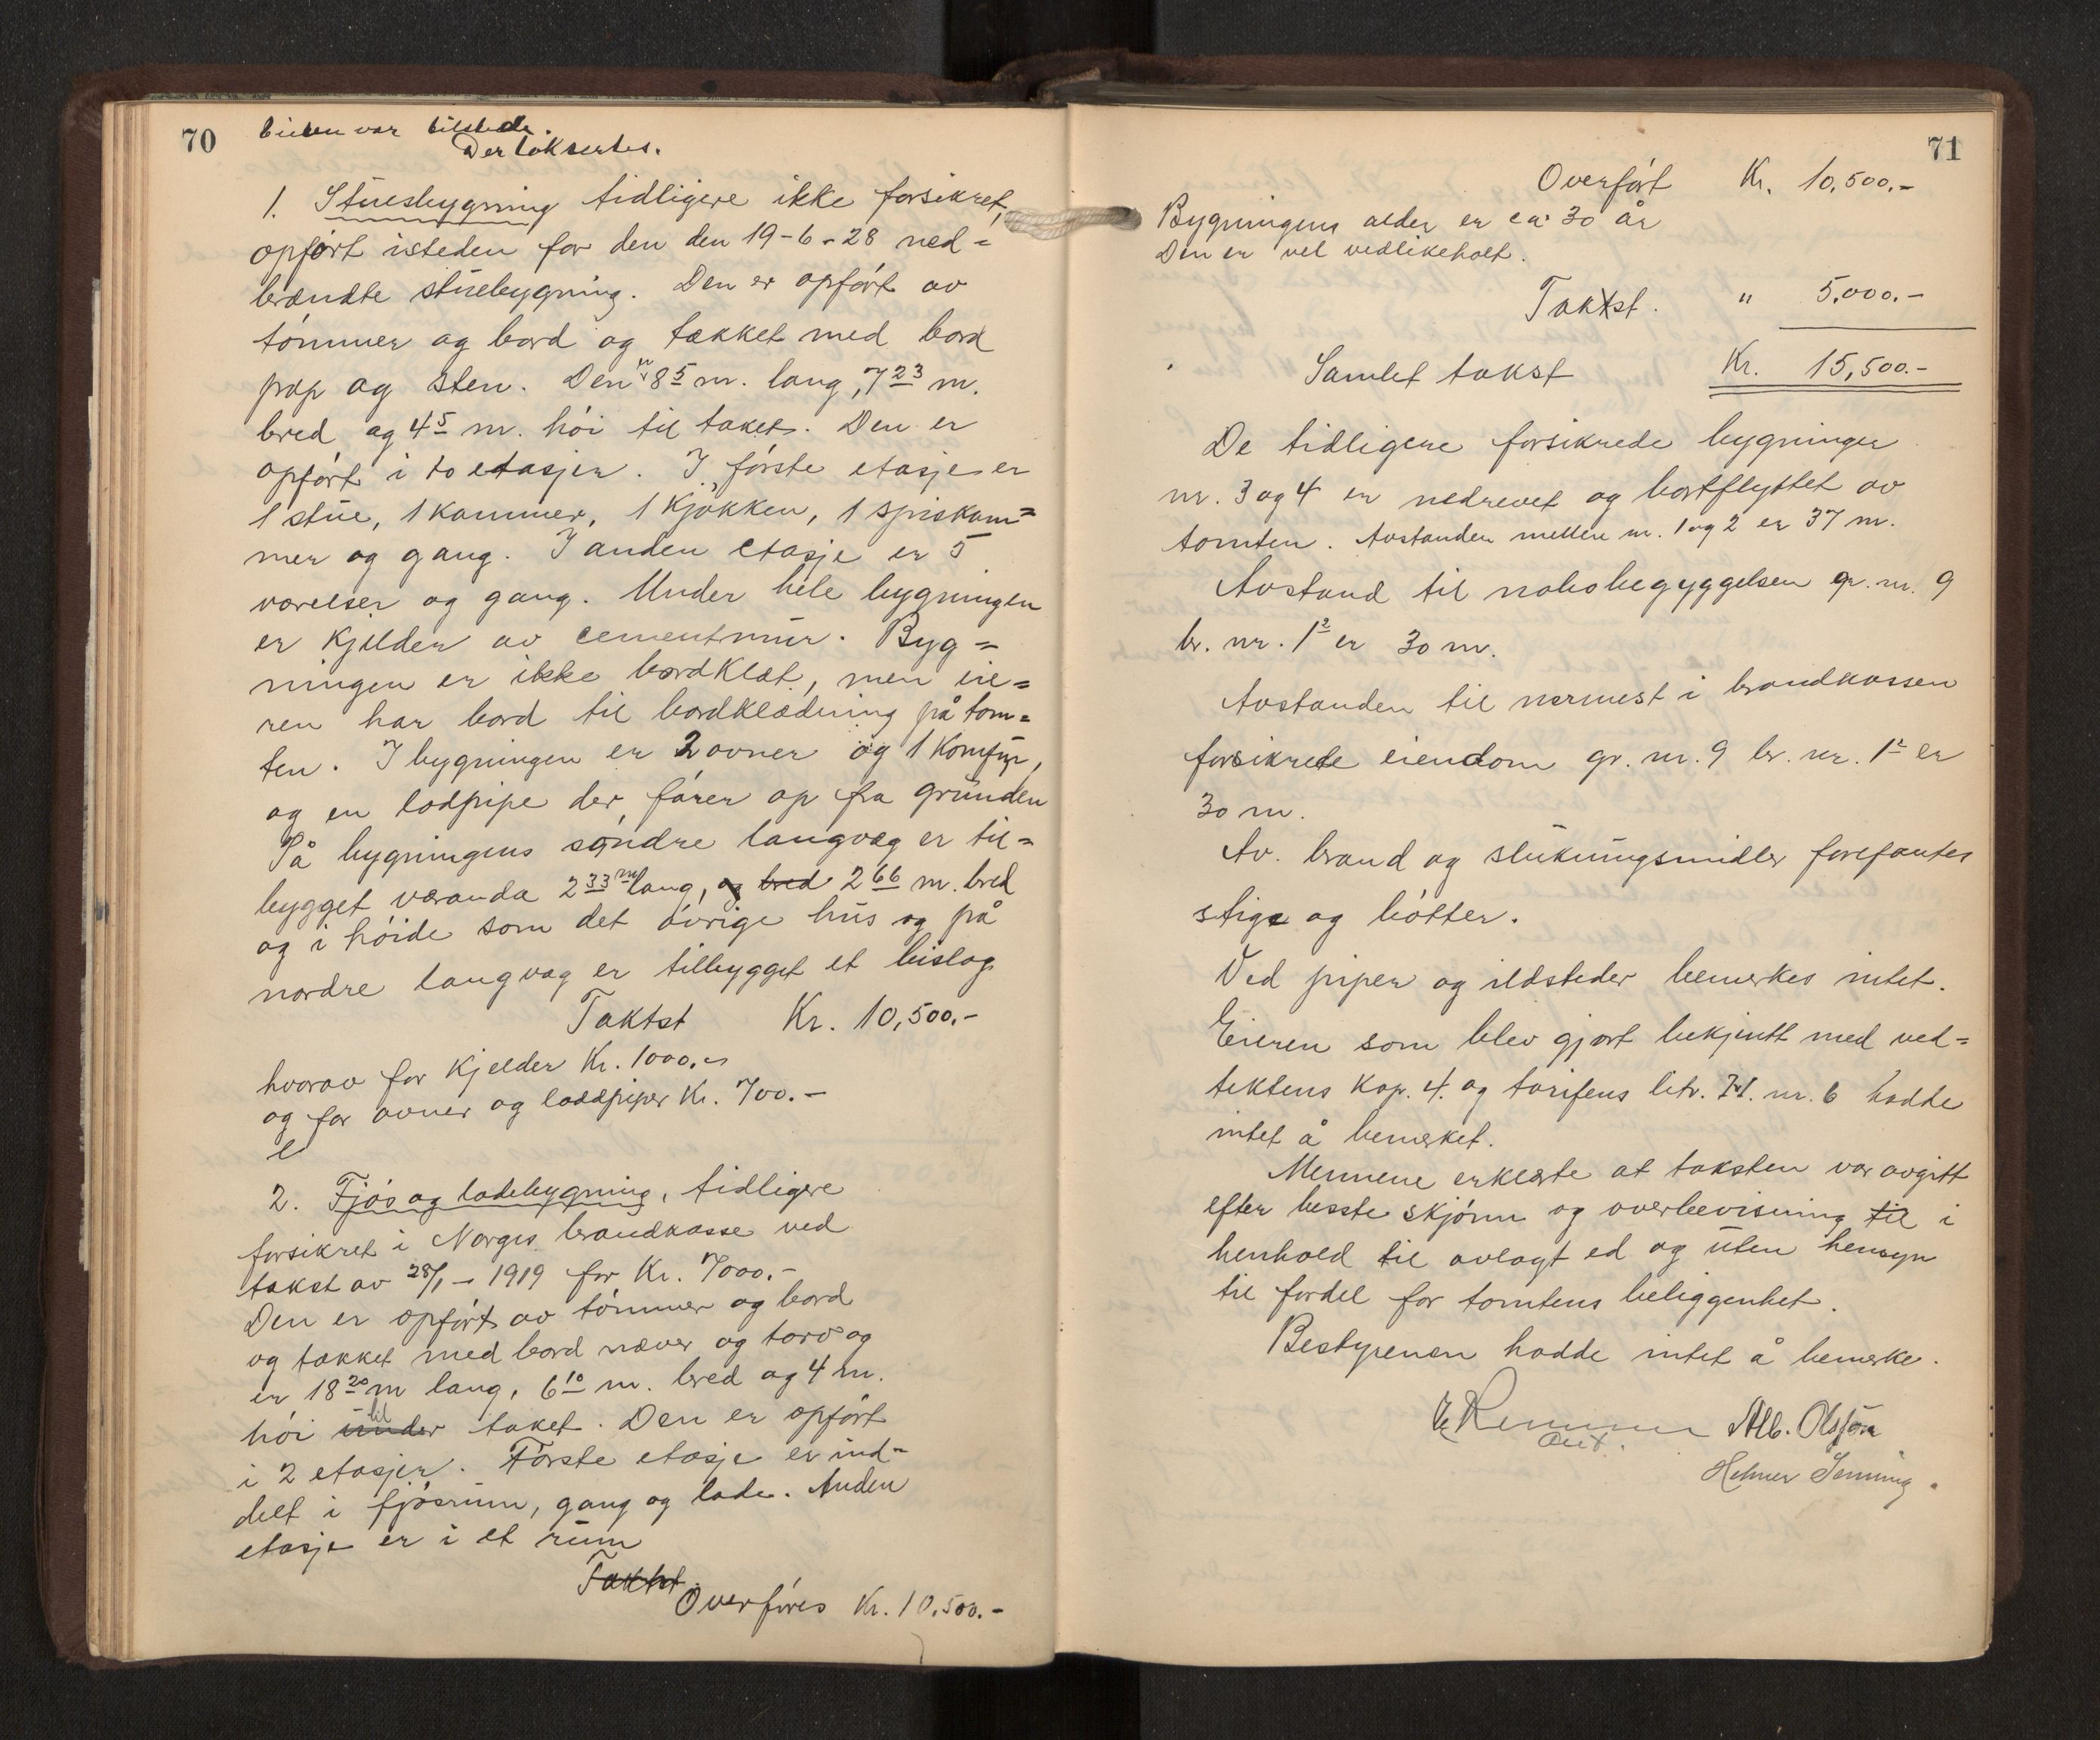 70
Eieren var tilstede.
Der taksertes.
1. Stuesbygning tidligere ikke forsikret,
opført isteden for den den 19-6-28 ned=
brændte stuebygning. Den er opført av
tømmer og bord og tækket med bord
pap og sten. Den er 8 5 m. lang, 7 23 m.
bred og 4 5 m. høi til taket. Den er
opført i to etasjer. I første etasje er
1 stue, 1 kammer, 1 kjøkken, 1 spiskam=
mer og gang. I anden etasje er 5
værelser og gang. Under hele bygningen
er kjelder av cementmur. Byg=
ningen er ikke bordklæt, men eie=
ren har bord til bordklædning på tom=
ten. I bygningen er 2 ovner og 1 komfyr,
og en lodpipe der fører op fra grunden
På bygningens søndre langvæg er til=
bygget væranda 2 33 m lang, og bred 2 66 m. bred
og i høide som det øvrige hus og på
nordre langvæg er tilbygget et bislag
Taktst Kr. 10,500.-
hvorav for kjelder Kr. 1000.-
og for ovner og loddpiper Kr. 700.-
2. Fjøs og ladebygning, tidligere
forsikret i Norges brandkasse ved
takst av 28/1 - 1919 for Kr. 7000.-
Den er opført av tømmer og bord
og tækket med bord næver og torv og
er 18 20 m lang, 6 10 m. bred og 4 m.
høi under til taket. Den er opført
i 2 etasjer. Første etasje er ind=
delt i fjøsrum, gang og lade. Anden
etasje er i et rum
Taktst
Overføres Kr. 10,500.-
71
Overført Kr. 10,500.-
Bygningens alder er ca: 30 år
Den er vel vedlikeholt.
Taktst. " 5,000.-
Samlet takst Kr. 15,500.-
De tidligere forsikrede bygninger
nr. 3 og 4 er nedrevet og bortflyttet av
tomten. Avstanden mellem nr. 1 og 2 er 37 m.
Avstand til nabobegyggelsen gr. nr. 9
br. nr. 1 2 er 30 m.
Avstanden til nærmest i brandkassen
forsikrede eiendom gr. nr. 9 br. nr. 1 2 er
30 m.
Av. brand og slukningsmidler forefantes
stige og bøtter.
Ved piper og ildsteder bemerkes intet.
Eieren som blev gjort bekjentt med ved=
tektens kap. 4. og tarifens litr. nr. 6 hadde
intet å bemerket.
Mennene erklærte at taksten var avgitt
efter besste skjønn og overbevisning til i
henhold til avlagt ed og uten hensyn
til fordel for tomtens beliggenhet.
Bestyreren hadde intet å bemerke.
Alb. Olsson
Helmer